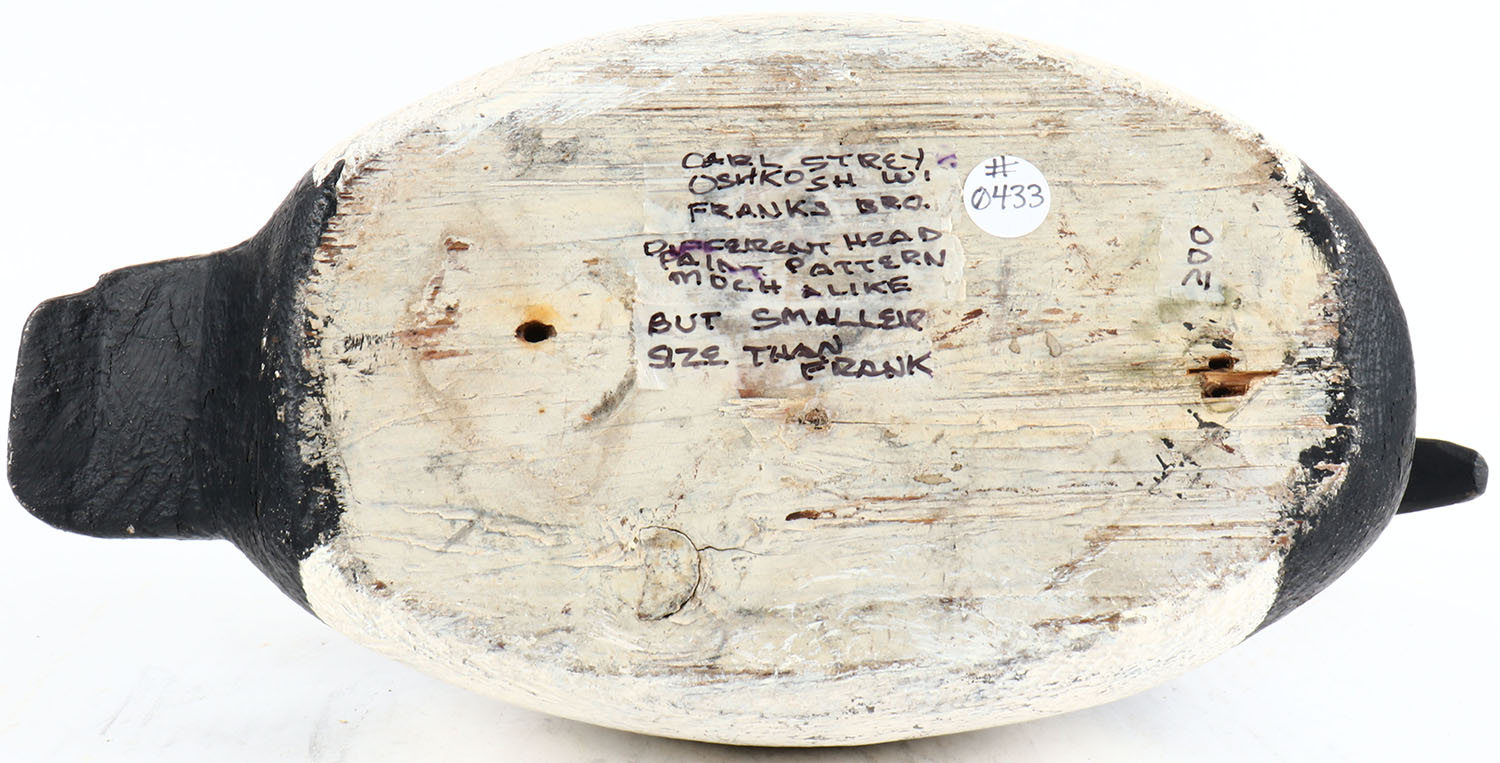 CARL STREY
OSHKOSH WI
FRANKS BRO.
DIFFERENT HEAD
PAINT PATTERN
MUCH ALIKE
BUT SMALLER
SIZE THAN
FRANK
#
0433
200